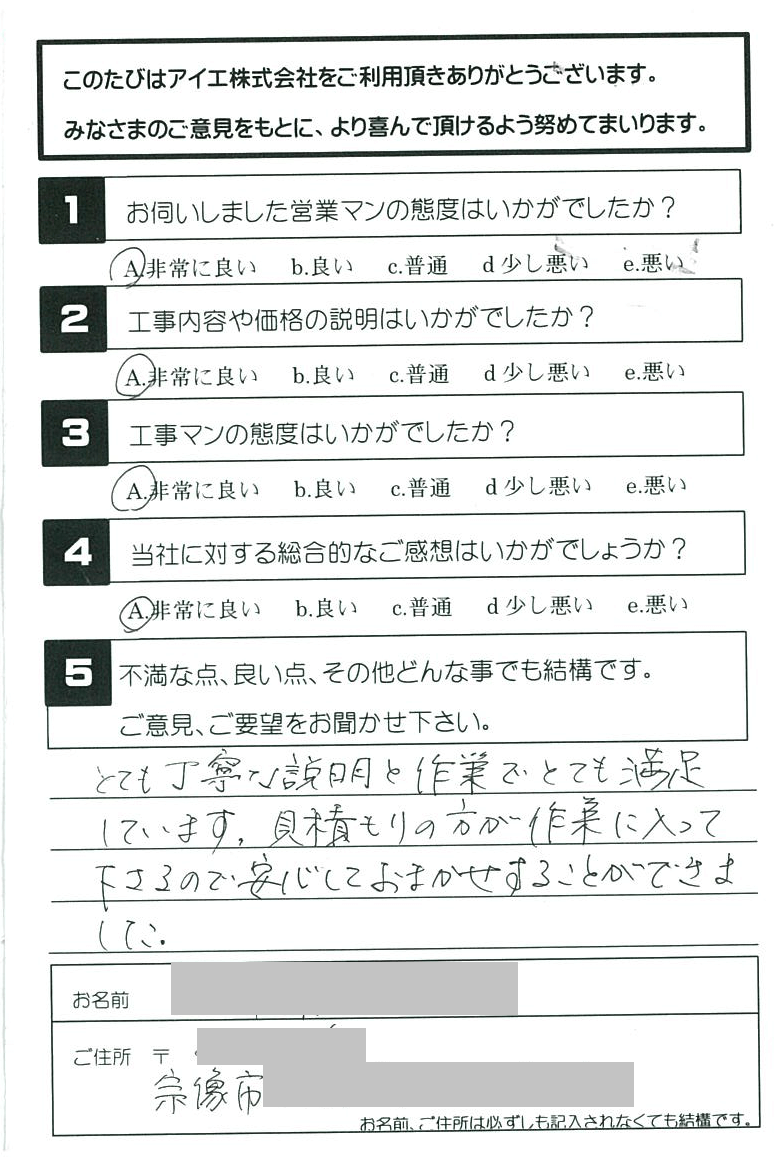 このたびはアイエ株式会社をご利用頂きありがとうございます。
みなさまのご意見をもとに、より喜んで頂けるよう努めてまいります。
1 お伺いしました営業マンの態度はいかがでしたか？
A.非常に良い b.良い c.普通 d 少し悪い e.悪い
2 工事内容や価格の説明はいかがでしたか？
A.非常に良い b.良い c.普通 d 少し悪い e.悪い
3 工事マンの態度はいかがでしたか？
A.非常に良い b.良い c.普通 d 少し悪い e.悪い
4 当社に対する総合的なご感想はいかがでしょうか？
A.非常に良い b.良い c.普通 d 少し悪い e.悪い
5 不満な点、良い点、その他どんな事でも結構です。
ご意見、ご要望をお聞かせ下さい。
とても丁寧な説明と作業でとても満足
しています。見積もりの方が作業に入って
下さるので安心しておまかせすることができま
した。
お名前
ご住所 〒
宗像市
お名前、ご住所は必ずしも記入されなくても結構です。